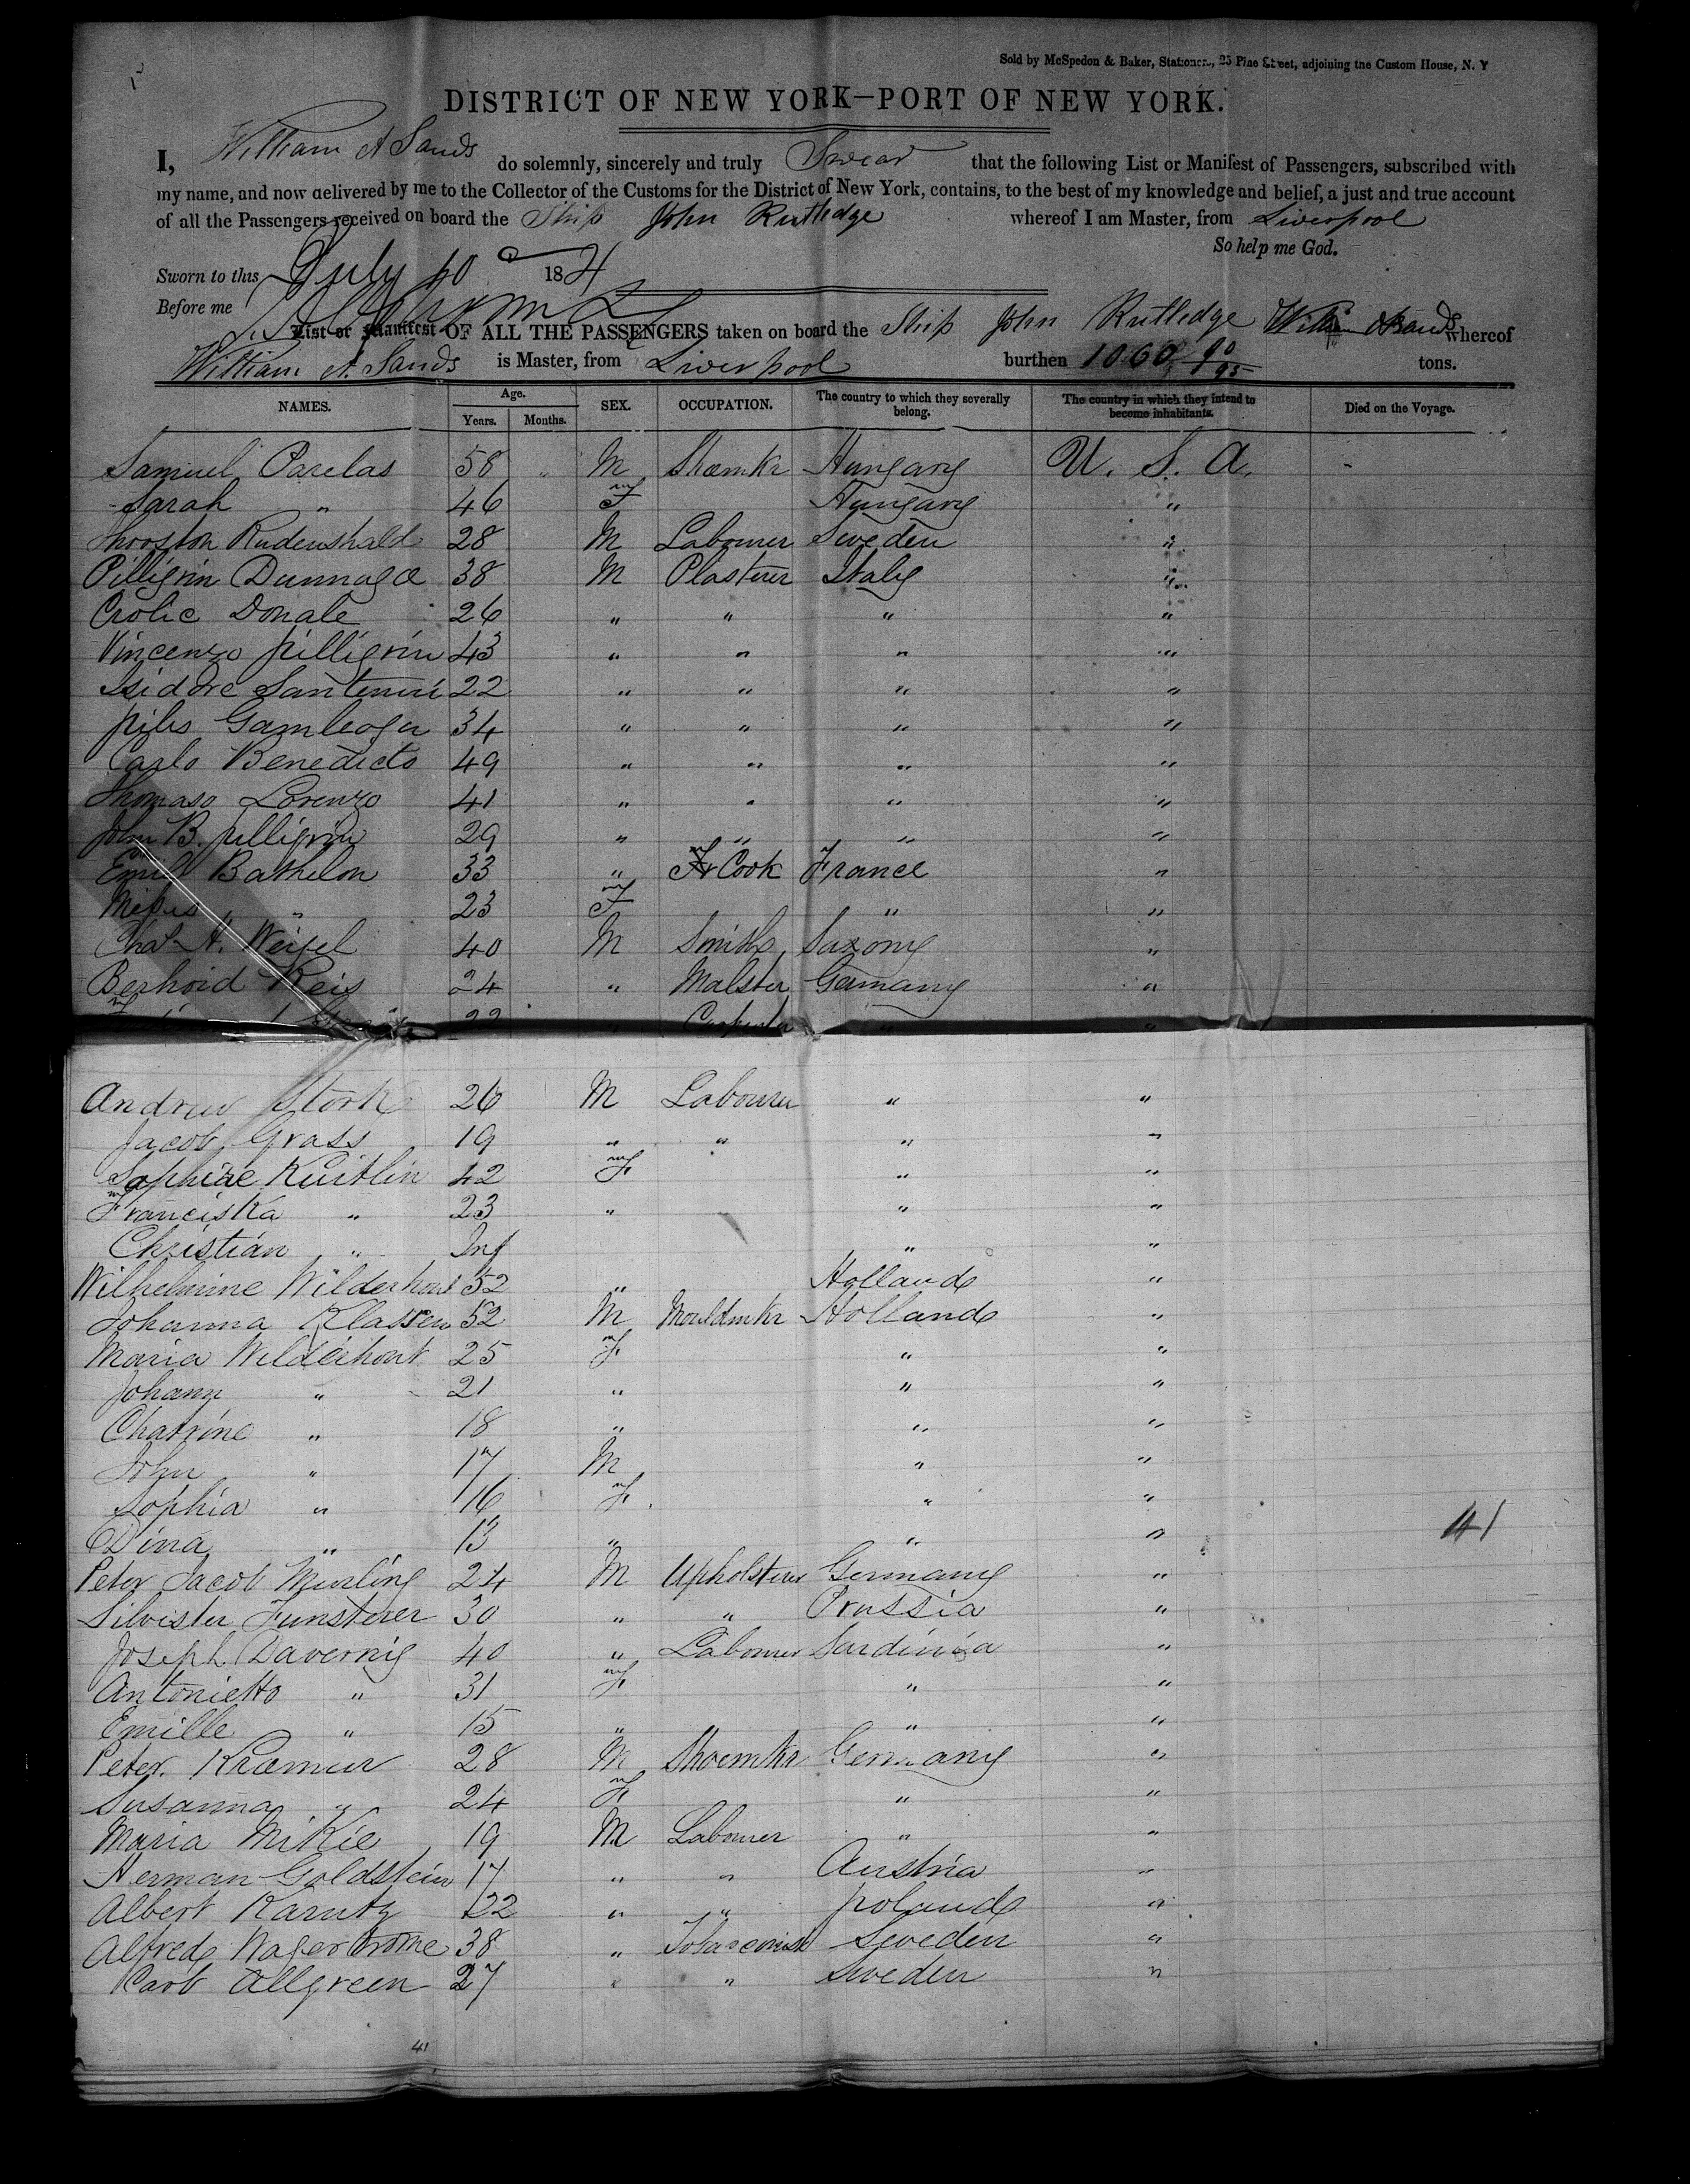 Sold by McSpedon & Baker, Stationers, 25 Pine Street, adjoining the Custom House, N. Y
DISTRICT OF NEW YORK—PORT OF NEW YORK.
I, William A Sands do solemnly, sincerely and truly Swear that the following List or Manifest of Passengers, subscribed with
my name, and now delivered by me to the Collector of the Customs for the District of New York, contains, to the best of my knowledge and belief, a just and true account
of all the Passengers received on board the Ship John Rutledge whereof I am Master, from Liverpool
So help me God.
Sworn to this July 10 18
Before me
List or Manifest OF ALL THE PASSENGERS taken on board the Ship John Rutledge William A Sands whereof
William A. Sands is Master, from Liverpool burthen 1060 90/95 tons.
NAMES. Age. Years. Months. SEX. OCCUPATION. The country to which they severally belong. The country in which they intend to become inhabitants. Died on the Voyage.
Samuel Parelas 58 M Shoemkr Hungary U. S. A.
Sarah " 46 F Hungary "
Rudenshald 28 M Labourer Sweden "
Pilligrin Dunnage 38 M Plasterer Italy "
Crolic Donale 26 " " " "
Vincenzo pilligrin 43 " " " "
Isidore Santenui 22 " " " "
34 " " " "
Carlo Benedicto 49 " " " "
Thomaso Lorenzo 41 " " " "
John B. pilligrin 29 " " " "
Emil Bathelon 33 " Cook France "
" 23 F " "
Chas A. Weisel 40 M Smith Saxony "
Berhoid Reis 24 " Malster Germany "
Andrew Stork 26 M Labourer " "
Jacob Grass 19 " " " "
Sophiae Kuitlin 42 F " "
Franciska " 23 " " "
Christian " Inf " "
Wilhelmine Wilderhout 52 " Holland "
Johanna Klassen 52 M Mouldmkr Holland "
Maria Wilderhout 25 F " "
Johann " 21 " " "
Chatrine " 18 " " "
John " 17 M " "
Sophia " 16 F " "
Dina " 13 " " "
141
Peter Jacob Murling 24 M Upholsterer Germany "
Silvester Funsterer 30 " " Prussia "
Joseph Davernig 40 " Labourer Sardinia "
Antonietto " 31 F " "
Emille " 15 " " "
Peter Kramur 28 M Shoemkr Germany "
Susanna " 24 F " "
Maria Mikie 19 M Labourer " "
Herman Goldstein 17 " " Austria "
Albert Karutz 22 " " poland "
Alfred 38 " Sweden "
Carb Allgreen 27 " " Sweden "
41